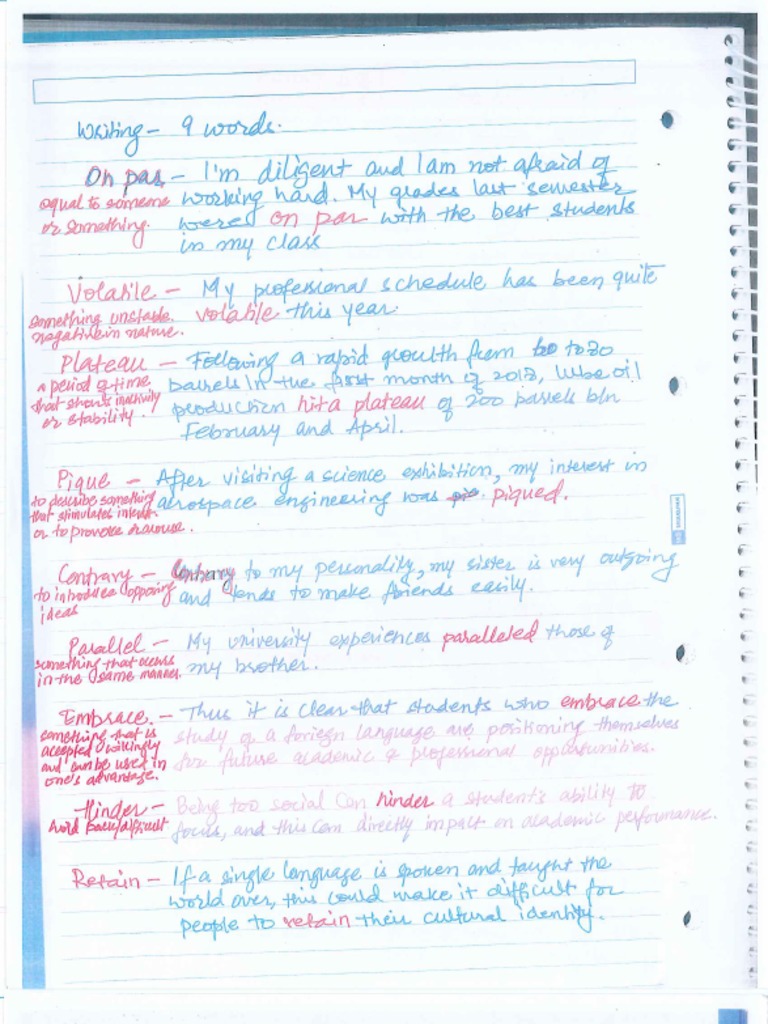 Writing - 9 words.
On par - I'm diligent and I am not afraid of
equal to someone working hard. My grades last semester
or something. were on par with the best students
in my class
Volatile - My professional schedule has been quite
something unstable. volatile this year.
negative in nature.
Plateau - Following a rapid growth from to 20
a period of time barrels in the first month of 2013, lube oil
that shows inactivity production hit a plateau of 200 barrels btn
or stability. February and April.
Pique - After visiting a science exhibition, my interest in
to describe something aerospace engineering was piqued.
that stimulates interest
or to provoke
Contrary - Contrary to my personality, my sister is very outgoing
to introduce opposing and tends to make friends easily.
ideas
Parallel - My university experiences paralleled those of
something that occurs my brother.
in the same manner.
Embrace. - Thus it is clear that students who embrace the
something that is study of a foreign language are positioning themselves
accepted willingly for future academic & professional opportunities.
and can be used in
one's advantage.
Hinder - Being too social can hinder a student's ability to
hold back/difficult focus, and this can directly impact on academic performance.
Retain - If a single language is spoken and taught the
world over, this could make it difficult for
people to retain their cultural identity.